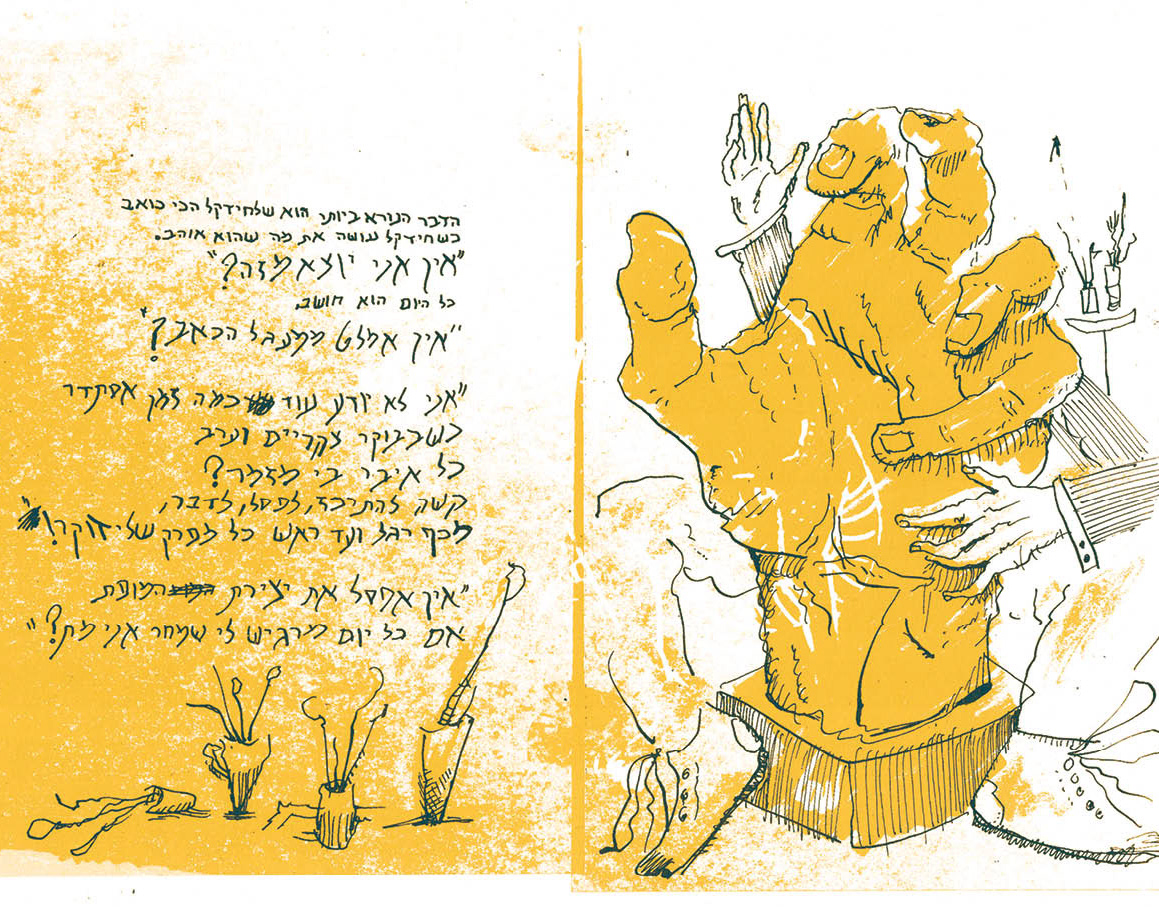 הדבר הנורא ביותר הוא שלחידקל הכי כואב
כשחידקל עושה את מה שהוא אוהב.
"איך אני יוצא מזה?"
כל היום הוא חושב.
"איך אמלט ממעגל הכאב?"
"אני לא יודע עוד כמה זמן אסתדר
כשבבוקר צהריים וערב
כל איבר בי מזמר?
קשה להתרכז, לפסל, לדבר,
מכף רגל ועד ראש כל מפרק שלי זוקר!"
"איך אפסל את יצירת המופת
אם כל יום מרגיש לי שמחר אני מת?"